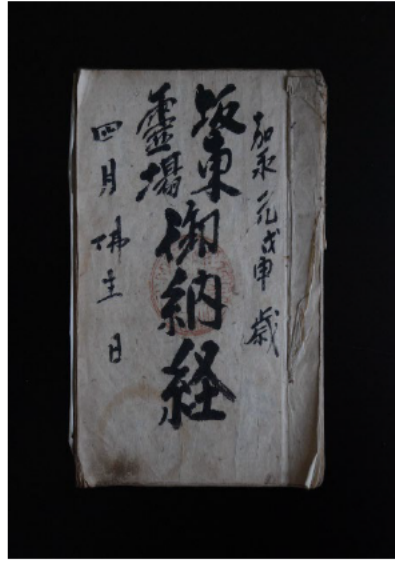 嘉永元戊申歳
坂東
霊場
御納経
四月佛生日